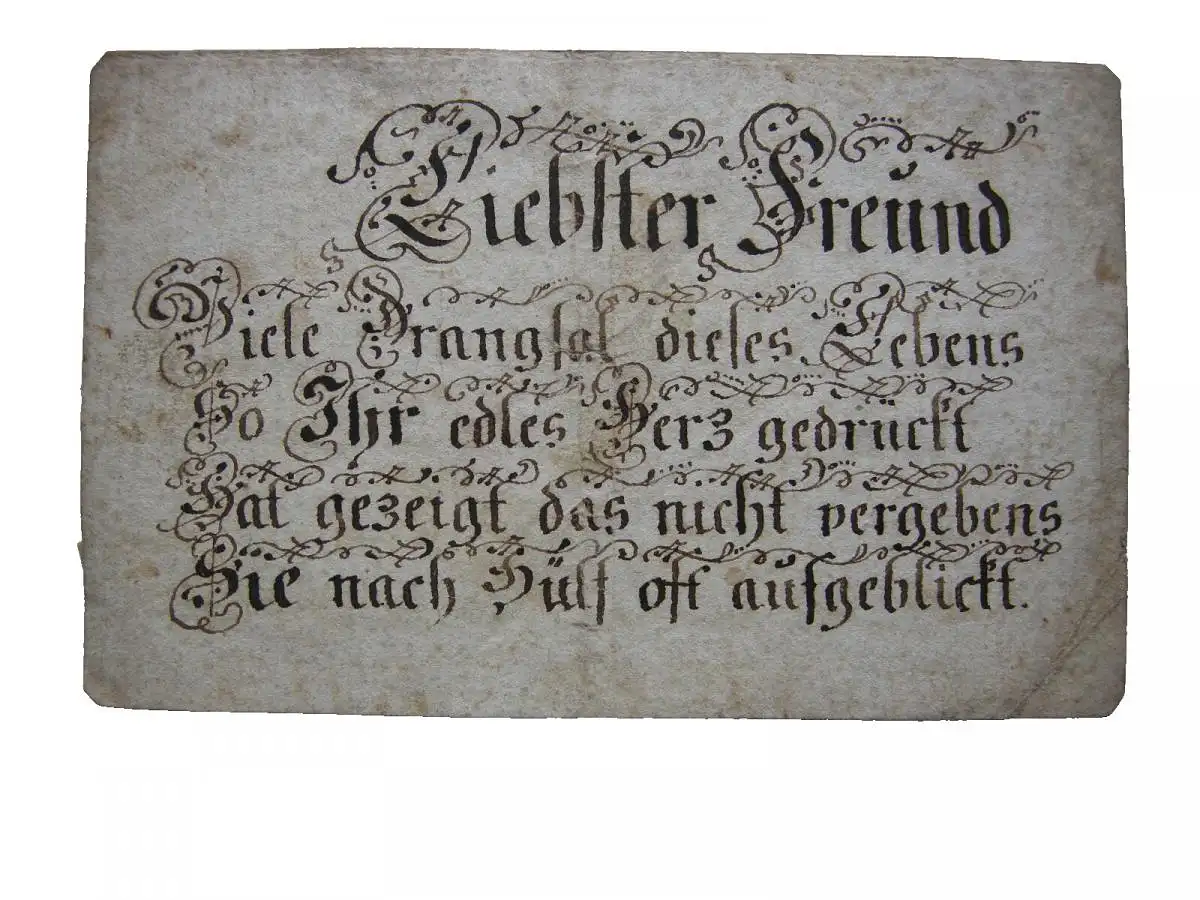 Liebster Freund
Viele Drangsal dieses Lebens
So Ihr edles Herz gedrückt
Hat gezeigt das nicht vergebens
Sie nach Hülf oft aufgeblickt.